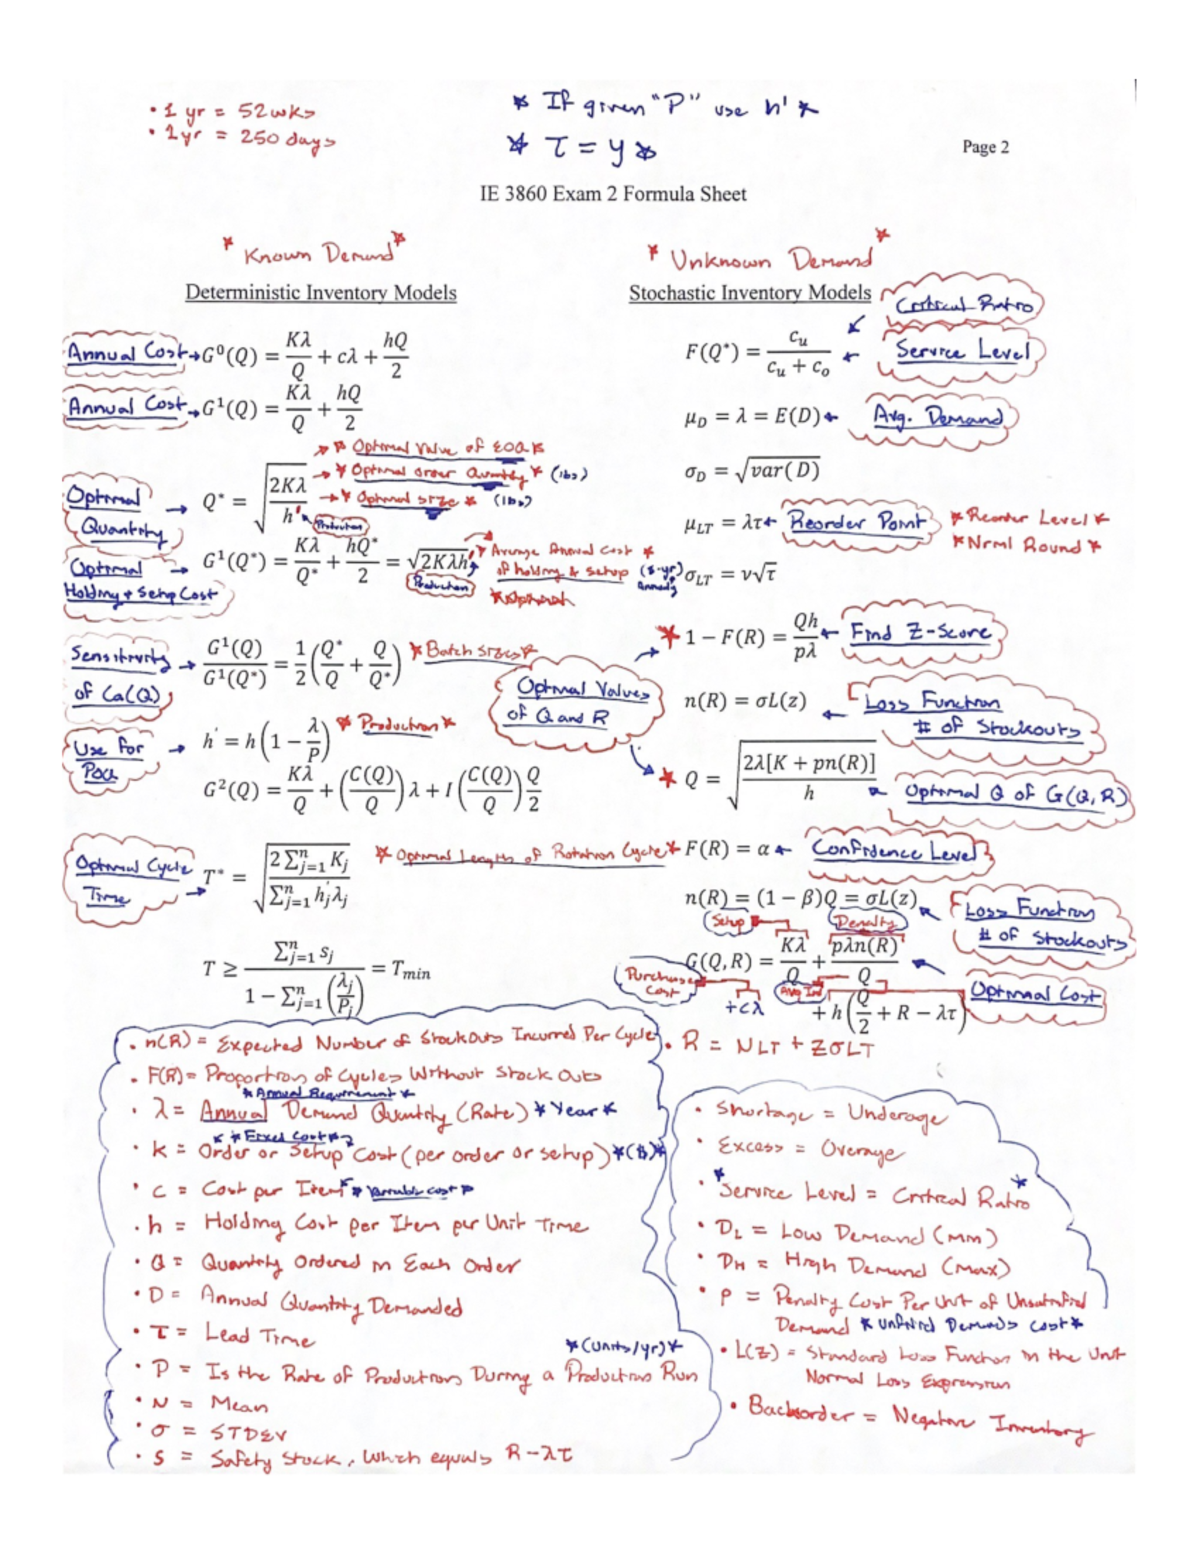 • 1 yr = 52wks
• 1yr = 250 days
* If given "P" use h' *
* τ = y *
Page 2
IE 3860 Exam 2 Formula Sheet
* Known Demand *
Deterministic Inventory Models
Annual Cost → G⁰(Q) = Kλ/Q + cλ + hQ/2
Annual Cost → G¹(Q) = Kλ/Q + hQ/2
→ * Optimal Value of EOQ *
→ * Optimal order Quantity * (lbs)
→ * Optimal size * (lbs)
Optimal Quantity → Q* = √(2Kλ/h')
Production
Optimal Holding + Setup Cost → G¹(Q*) = Kλ/Q* + hQ*/2 = √2Kλh'
Production
* Average Annual Cost *
of holding & setup ($-yr)
Annually
*Optimal*
Sensitivity of Ca(Q) → G¹(Q)/G¹(Q*) = 1/2 (Q*/Q + Q/Q*) * Batch sizes *
Use for POQ → h' = h(1 − λ/P) * Production *
G²(Q) = Kλ/Q + (C(Q)/Q)λ + I(C(Q)/Q)Q/2
Optimal Cycle Time → T* = √(2 ∑ⁿⱼ₌₁ Kⱼ / ∑ⁿⱼ₌₁ h'ⱼλⱼ)
* Optimal Length of Rotation Cycle *
T ≥ ∑ⁿⱼ₌₁ sⱼ / (1 − ∑ⁿⱼ₌₁ (λⱼ/Pⱼ)) = Tmin
* Unknown Demand *
Stochastic Inventory Models
Critical Ratio
F(Q*) = cᵤ/(cᵤ + cₒ) ← Service Level
μD = λ = E(D) ← Avg. Demand
σD = √var(D)
μLT = λτ ← Reorder Point * Reorder Level *
* Nrml Round *
σLT = ν√τ
* 1 − F(R) = Qh/pλ ← Find Z-Score
Optimal Values of Q and R
n(R) = σL(z) ← Loss Function # of Stockouts
* Q = √(2λ[K + pn(R)]/h) ← Optimal Q of G(Q,R)
F(R) = α ← Confidence Level
n(R) = (1 − β)Q = σL(z) ← Loss Function # of Stockouts
Setup
Penalty
G(Q,R) = Kλ/Q + pλn(R)/Q ← Optimal Cost
Purchase Cost
+cλ
Avg Inv
+ h(Q/2 + R − λτ)
• R = NLT + ZσLT
• n(R) = Expected Number of Stockouts Incurred Per Cycle
• F(R) = Proportion of Cycles Without Stock Outs
* Annual Requirement *
• λ = Annual Demand Quantity (Rate) * Year *
* Fixed Cost *
• K = Order or Setup Cost (per order or setup) *($)*
• C = Cost per Item * Variable Cost *
• h = Holding Cost per Item per Unit Time
• Q = Quantity Ordered in Each Order
• D = Annual Quantity Demanded
• τ = Lead Time
*(Units/yr)*
• P = Is the Rate of Production During a Production Run
• N = Mean
• σ = STDEV
• S = Safety Stock, Which equals R − λτ
• Shortage = Underage
• Excess = Overage
• *Service Level = Critical Ratio *
• DL = Low Demand (Min)
• DH = High Demand (Max)
• P = Penalty Cost Per Unit of Unsatisfied
Demand * Unfilled Demands Cost *
• L(Z) = Standard Loss Function in the Unit
Normal Loss Expression
• Backorder = Negative Inventory